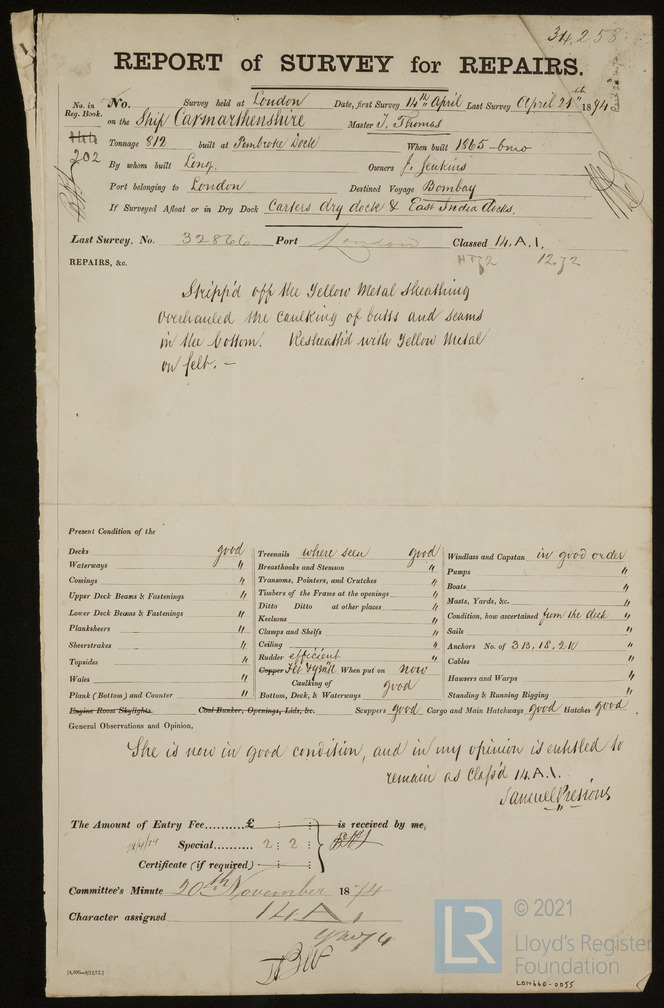 34,258
REPORT of SURVEY for REPAIRS.
No. in Reg. Book. No. Survey held at London Date, first Survey 14th April Last Survey April 21st 1874
on the Ship Carmarthenshire Master T. Thomas
202 Tonnage 812 built at Pembroke Dock When built 1865-6mo
By whom built Long. Owners J. Jenkins
Port belonging to London Destined Voyage Bombay
If Surveyed Afloat or in Dry Dock Carters dry dock & East India docks.
Last Survey, No. 32866 Port London Classed 14.A.1.
REPAIRS, &c. 12.72
Stripp'd off the Yellow Metal sheathing
overhauled the caulking of butts and seams
in the bottom. Resheath'd with Yellow Metal
on felt. —
Present Condition of the
Decks good Treenails where seen good Windlass and Capstan in good order
Waterways " Breasthooks and Stemson " Pumps "
Comings " Transoms, Pointers, and Crutches " Boats "
Upper Deck Beams & Fastenings " Timbers of the Frame at the openings " Masts, Yards, &c. "
Lower Deck Beams & Fastenings " Ditto Ditto at other places " Condition, how ascertained from the deck "
Planksheers " Keelsons " Sails "
Sheerstrakes " Clamps and Shelfs " Anchors No. of 3B, 1S, 2K "
Topsides " Ceiling " Cables "
Wales " Rudder efficient " Hawsers and Warps "
Plank (Bottom) and Counter " Copper When put on now Standing & Running Rigging "
Caulking of Bottom, Deck, & Waterways good
Engine Room Skylights Coal Bunker, Openings, Lids, &c. Scuppers good Cargo and Main Hatchways good Hatches good
General Observations and Opinion,
She is now in good condition, and in my opinion is entitled to
remain as Class'd 14.A.1.
The Amount of Entry Fee.........£ : : is received by me,
Special.......... 2 : 2 :
Certificate (if required) : :
Committee's Minute 20th November 1874
Character assigned 14 A 1
© 2021
LR Lloyd's Register
Foundation
LON660-0055